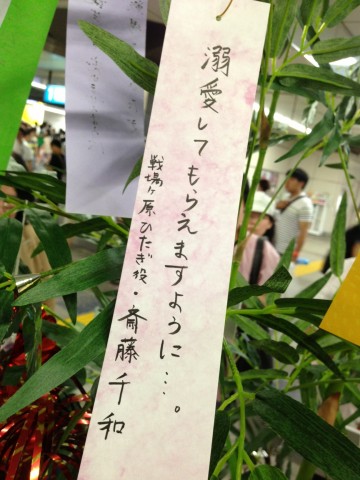 溺愛してもらえますように…。
戦場ヶ原ひたぎ役・斎藤千和